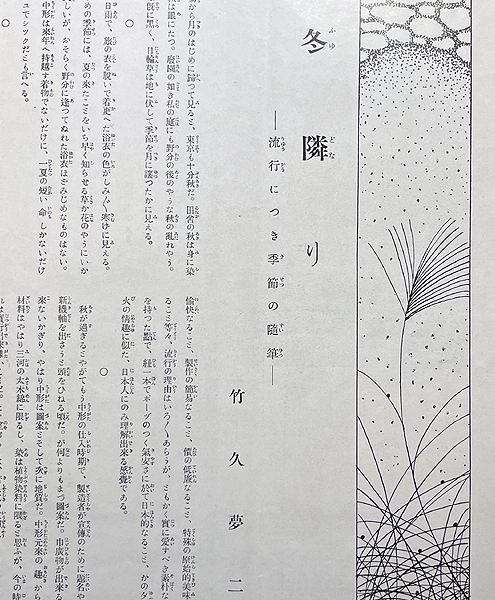 冬隣り
―流行につき季節の随筆―
竹久夢二
月のはじめに帰つて見ると、東京も十分秋だ。田舎の秋は身に染
は眼にたつ。廃園の如き私の庭にも野分の後のやうな秋の乱れやう。
に黒く、日輪草は地に伏して季節を月に譲つたかに見える。
○
日雨で、旅の衣を脱いで着更へた浴衣の色がしみ〴〵寒けに見える。
めの季節には、夏の来たことをいち早く知らせる草か花のやうにいか
しいが、おそらく野分に逢つてぬれた浴衣ほどみじめなものはない。
中形は来年へ持越す着物でないだけに、一夏の短い命しかないだけ
ユでシツクだとも言へる。
愉快なること、製作の簡易なること、価の低廉なること、特殊の原始的美味
ること等々、流行の理由はいろ〳〵あらうが、ともかく実に愛すべき素朴な
を持つた点で、紐一本でポーズのつく気安さに於て日本的なること、かの夕
火の情趣に似た、日本人にのみ理解出来る感覚である。
○
秋が過ぎるとやがてもう中形の仕入時期で、製造者が宣伝のために題名や
新機軸を出さうと頭をひねる頃だ。が何よりもまづ図案だ。巾広物が出来る
来ないかぎり、やはり中形は図案として次に地質だ。中形元来の趣から
材料はやはり三河の太木綿に限るし、染は植物染料に限ると思ふが、今の時